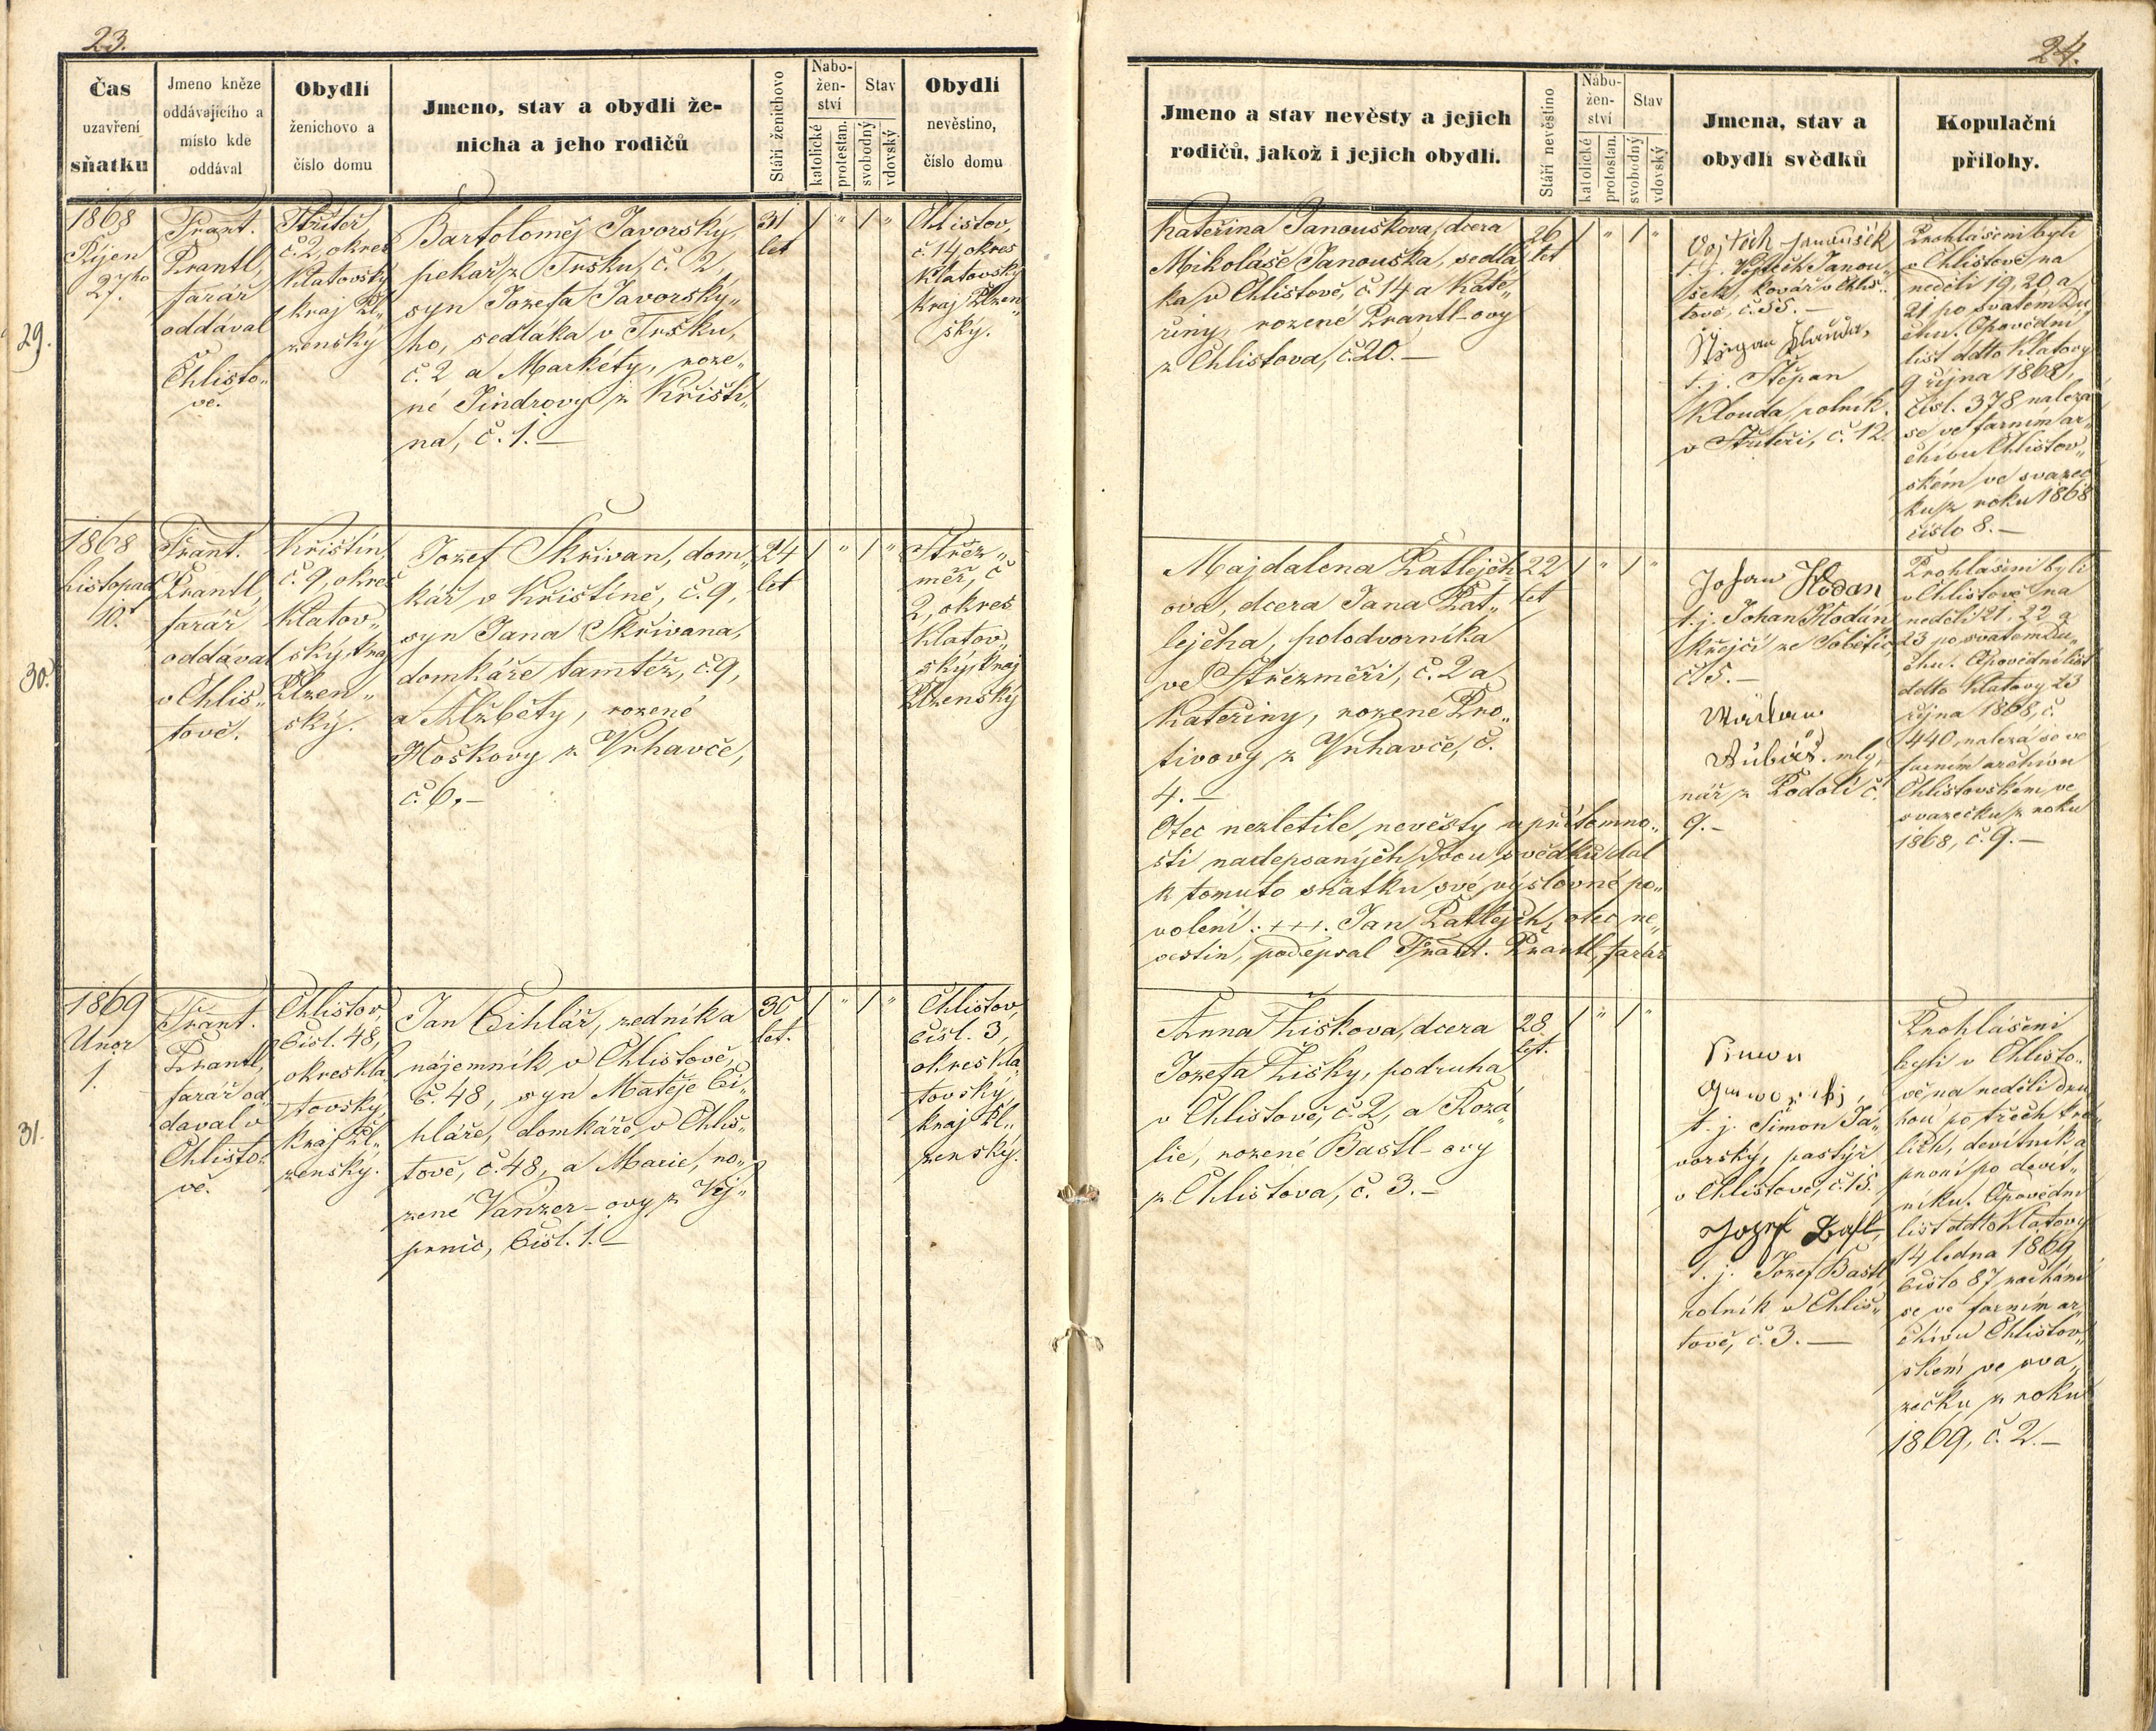 23.
Čas
uzavření
sňatku
Jmeno kněze
oddávajícího a
místo kde
oddával
Obydlí
ženichovo a
číslo domu
Jmeno, stav a obydlí že-
nicha a jeho rodičů
Stáří ženichovo
Nábo-
žen-
ství
katolické
protestan.
Stav
svobodný
vdovský
Obydlí
nevěstino,
číslo domu
29.
1868
Říjen
27ho
Frant.
Prantl,
farář
oddával
v
Chlisto„
vě.
č. 2, okres
Klatovský
kraj Pl„
zenský
Bartoloměj Javorský,
pekař z Tršku, č. 2,
syn Jozefa Javorský„
ho, sedláka v Tršku,
č. 2 a Markéty, roze„
né Jindrovy z Křišti„
na, č. 1. —
31
let
1 „ 1 „
Chlistov,
č. 14, okres
Klatovský
kraj Plzen„
ský.
30.
1868
Listopad
10.
Frant.
Prantl,
farář
oddával
v Chlis„
tově.
Křištín,
č. 9, okres
Klatov„
ský, kraj
Plzen„
ský.
Jozef Skřivan, dom„
kář v Křištíně, č. 9,
syn Jana Skřivana,
domkáře tamtéž, č. 9,
a Alžběty, rozené
Hoškovy z Vrhavče,
č. 6. —
24
let
1 „ 1 „
Střez„
měř, č.
2, okres
Klatov„
ský, kraj
Plzenský
31.
1869
Unor
1.
Frant.
Prantl,
farář od„
daval v
Chlisto„
vě.
Chlistov,
čísl. 48,
okres Kla„
tovský,
kraj Pl„
zenský.
Jan Cihlář, zedník a
nájemník v Chlistově,
č. 48, syn Matěje Ci„
hláře, domkáře v Chlis„
tově, č. 48, a Marie, ro„
zené Vanzer-ovy z Vej„
prnic, čísl. 1. —
30
let.
1 „ 1 „
Chlistov,
čísl. 3,
okres Kla„
tovský,
kraj Pl„
zenský.
24.
Jmeno a stav nevěsty a jejich
rodičů, jakož i jejich obydlí.
Stáří nevěstino
Nábo-
žen-
ství
katolické
protestan.
Stav
svobodný
vdovský
Jmena, stav a
obydlí svědků
Kopulační
přílohy.
Kateřina Janouškova, dcera
Mikoláše Janouška, sedlá„
ka v Chlistově, č. 14 a Kate„
řiny, rozené Prantl-ovy
z Chlistova, č. 20. —
26
let
1 „ 1 „
Vojtěch Janoušek
t. j. Vojtěch Janou„
šek, kovář v Chlis„
tově, č. 35. —
t. j. Štěpan
Klouda, rolník
č. 12.
Prohlášeni byli
v Chlistově na
neděli 19, 20 a
21 po svatém Du„
chu. Opovědní
list ddto Klatovy
9 října 1868,
čísl. 378 nalezá
se ve farním ar„
chivu Chlistov„
ském ve svazeč„
ku z roku 1868
číslo 8. —
Majdalena Patlejch„
ova, dcera Jana Pat„
lejcha, polodvorníka
ve Střezměři, č. 2 a
Kateřiny, rozené Pro„
tivovy z Vrhavče, č.
4. —
Otec nezletilé nevěsty v přítomno„
sti nadepsaných dvou svědků dal
k tomuto sňatku své výslovné po„
volení: +++. Jan Patlejch, otec ne„
vestin, podepsal Frant. Prantl, farář
22
let
1 „ 1 „
Johan Hodan
t. j. Johan Hodán
krejčí ze Sobětic,
č. 5. —
mly„
nář z Podolí č.
9. —
Prohlášeni byli
v Chlistově na
neděli 21, 22 a
23 po svatém Du„
chu. Opovědní list
ddto Klatovy 23
října 1868, č.
440, nalezá se ve
farním archivu
Chlistovském ve
svazečku z roku
1868, č. 9. —
Anna Žiškova, dcera
Jozefa Žišky, podruha
v Chlistově, č. 2, a Rozá„
lie, rozené Bastl-ovy
z Chlistova, č. 3. —
28
let.
1 „ 1 „
t. j. Šimon Ja„
vorský, pastýř
v Chlistově, č. 15.
Jozef Bastl,
t. j. Jozef Bastl,
rolník v Chlis„
tově, č. 3. —
Prohlášeni
byli v Chlisto„
vě, na neděli dru„
hou po třech krá„
lích, devítník a
první po devít„
níku. Opovědní
list ddto Klatovy
14 ledna 1869
číslo 87 nachází
se ve farním ar„
chivu Chlistov„
ském ve sva„
zečku z roku
1869, č. 2. —